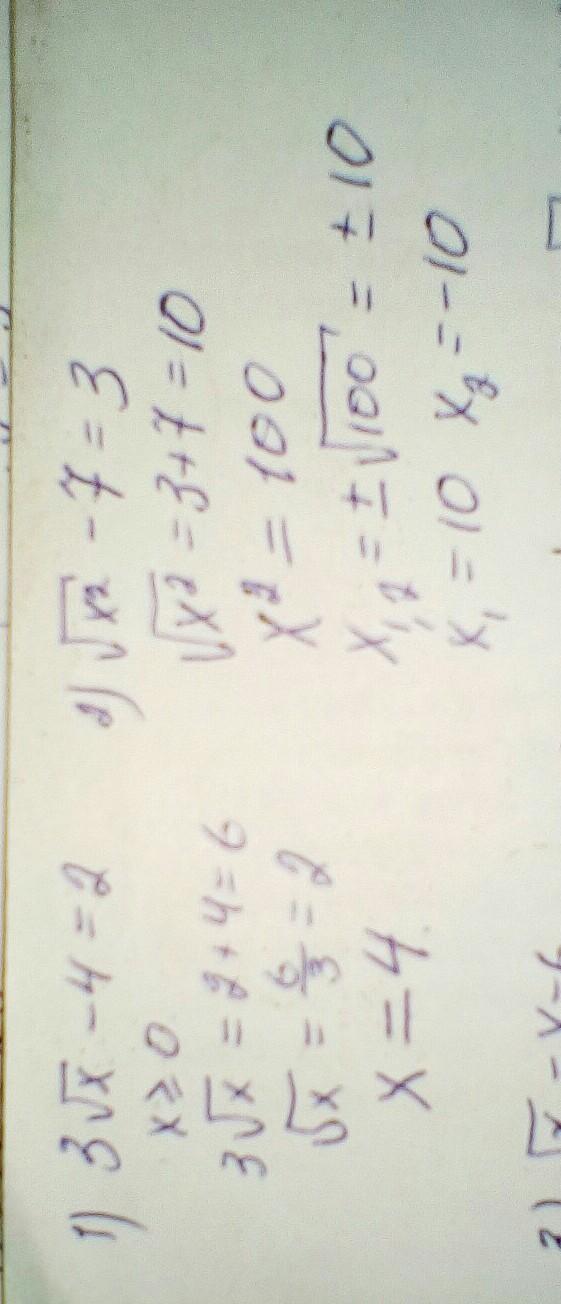 1) 3√x - 4 = 2
x ≥ 0
3√x = 2 + 4 = 6
√x = 6/3 = 2
x = 4
2) √x² - 7 = 3
√x² = 3 + 7 = 10
x² = 100
x₁,₂ = ±√100 = ± 10
x₁ = 10 x₂ = -10